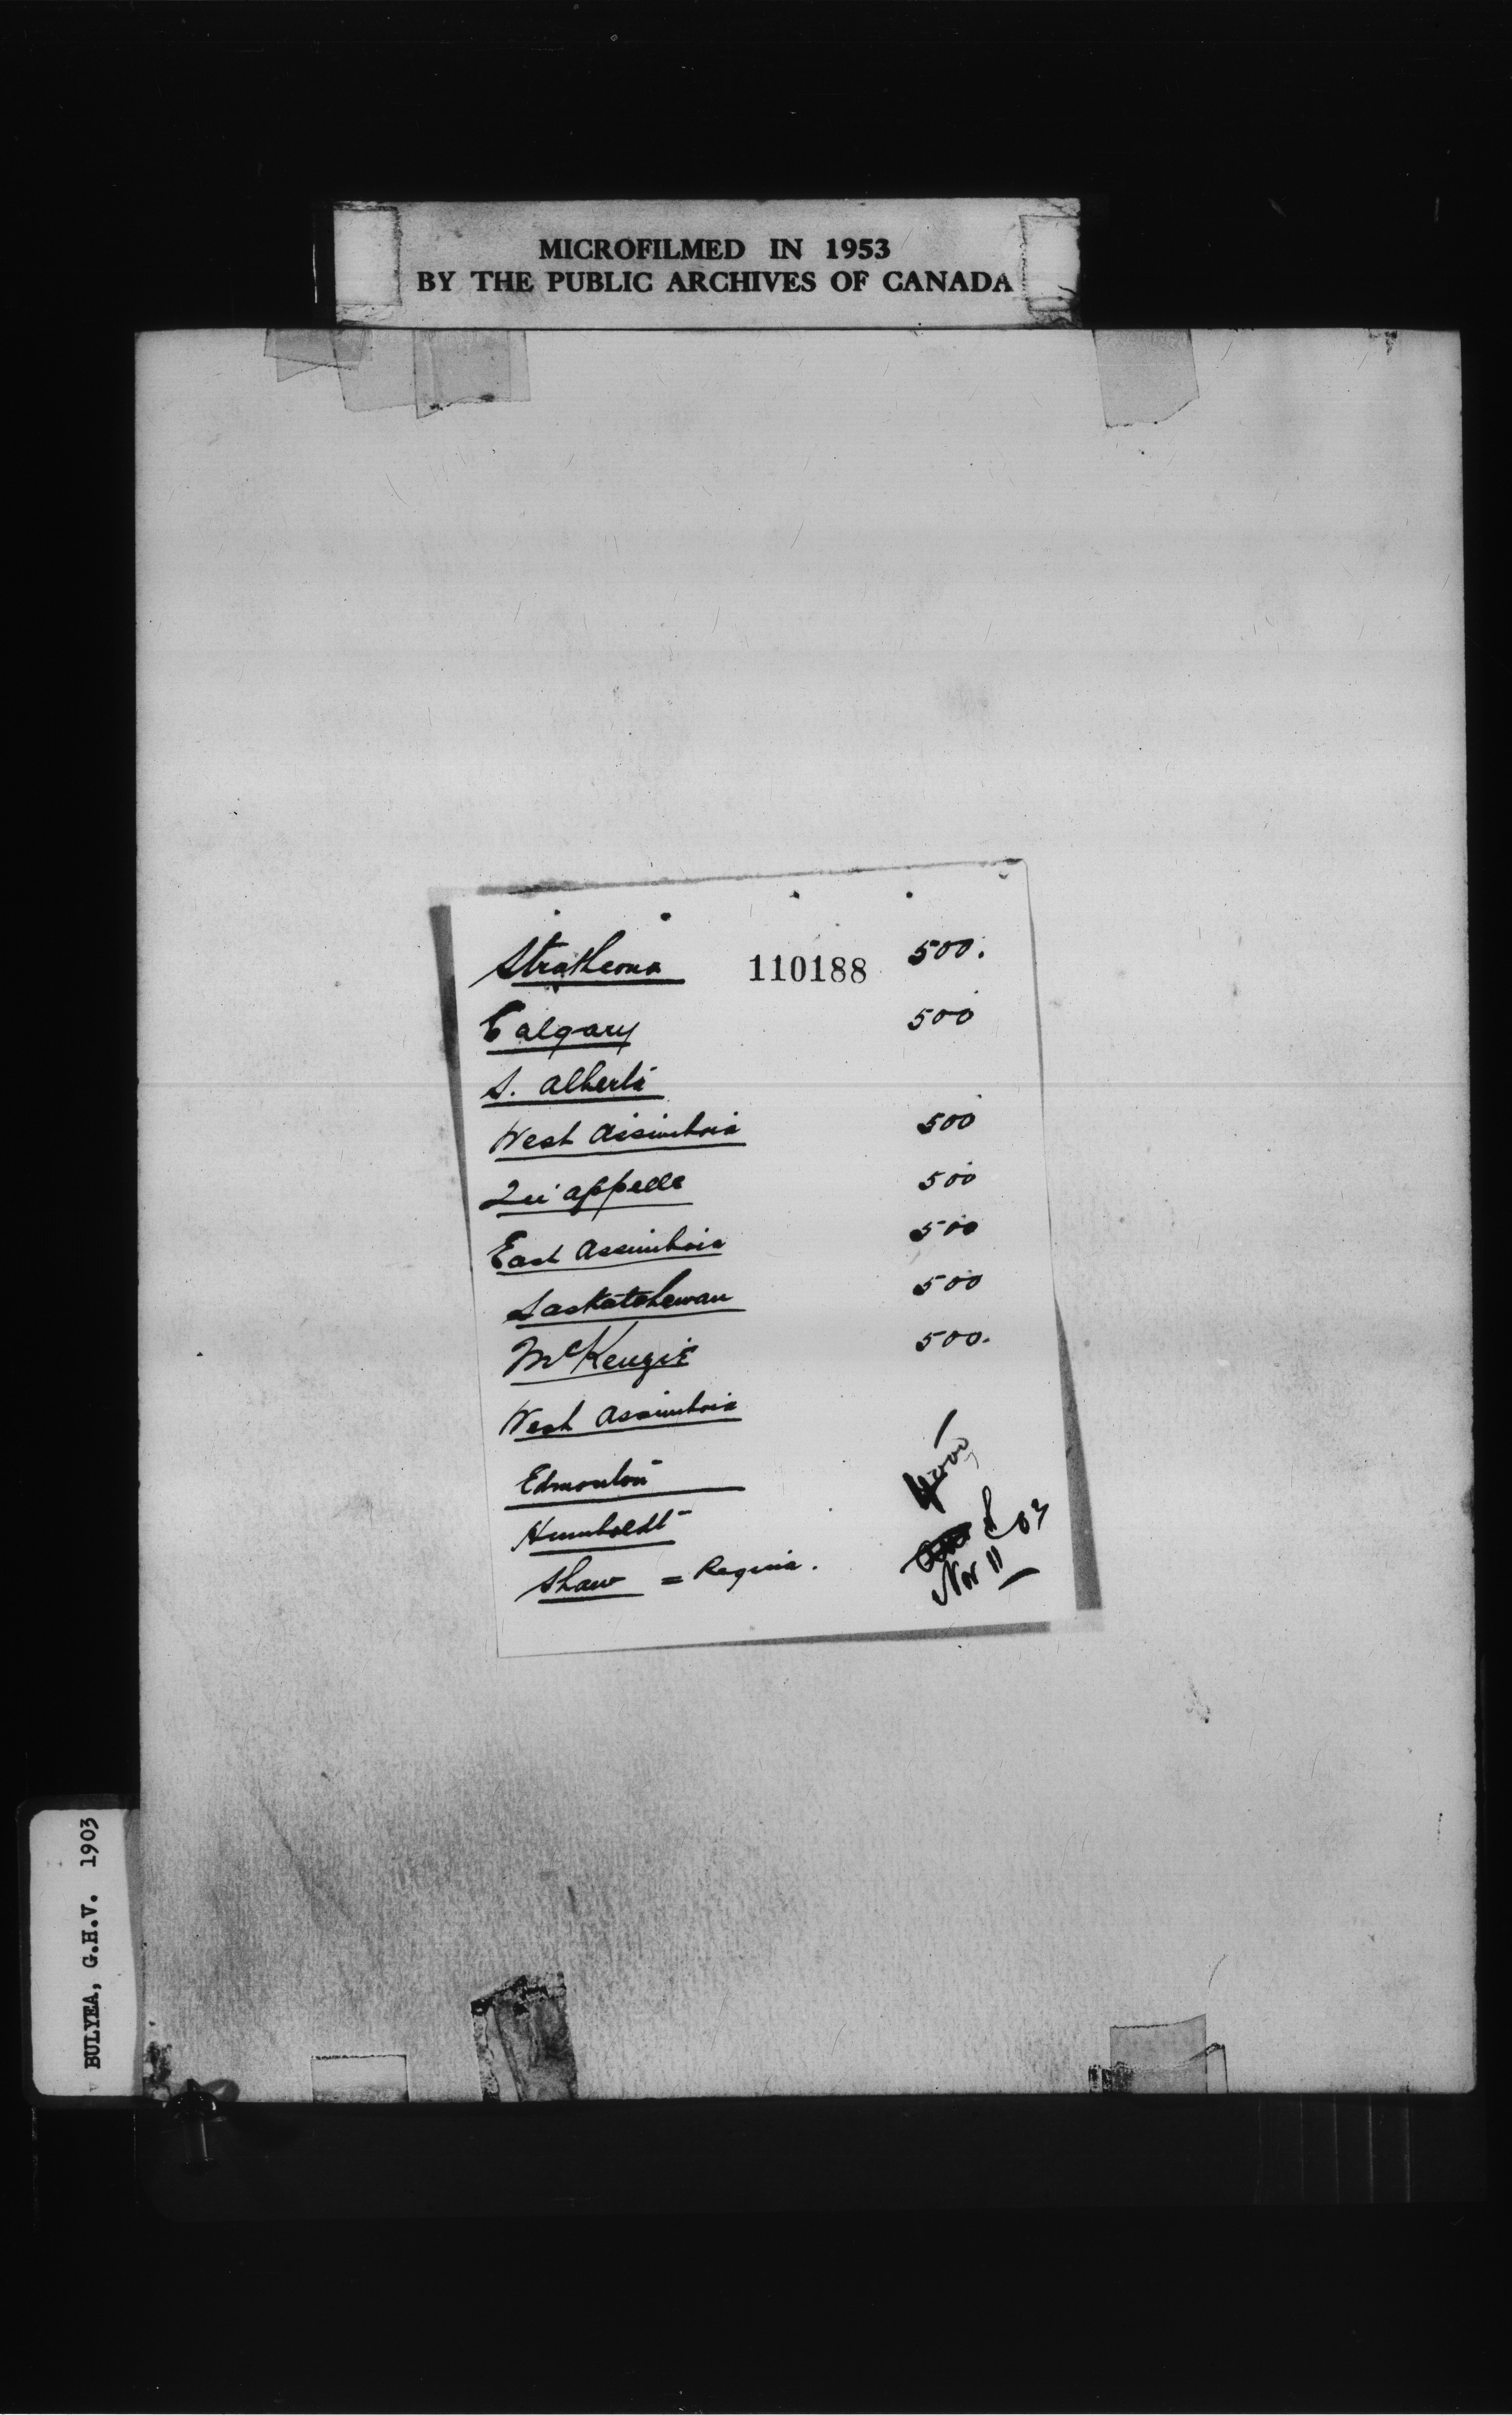 MICROFILMED IN 1953
BY THE PUBLIC ARCHIVES OF CANADA
Strathcona 110188 500.
Calgary 500
S. Alberta
West Assiniboia 500
Qu'appelle 500
East Assiniboia 500
Saskatchewan 500
McKenzie 500.
West Assiniboia
Edmonton
Humboldt
Shaw = Regina.
4000
Nov 11 03
BULYEA, G.H.V. 1903